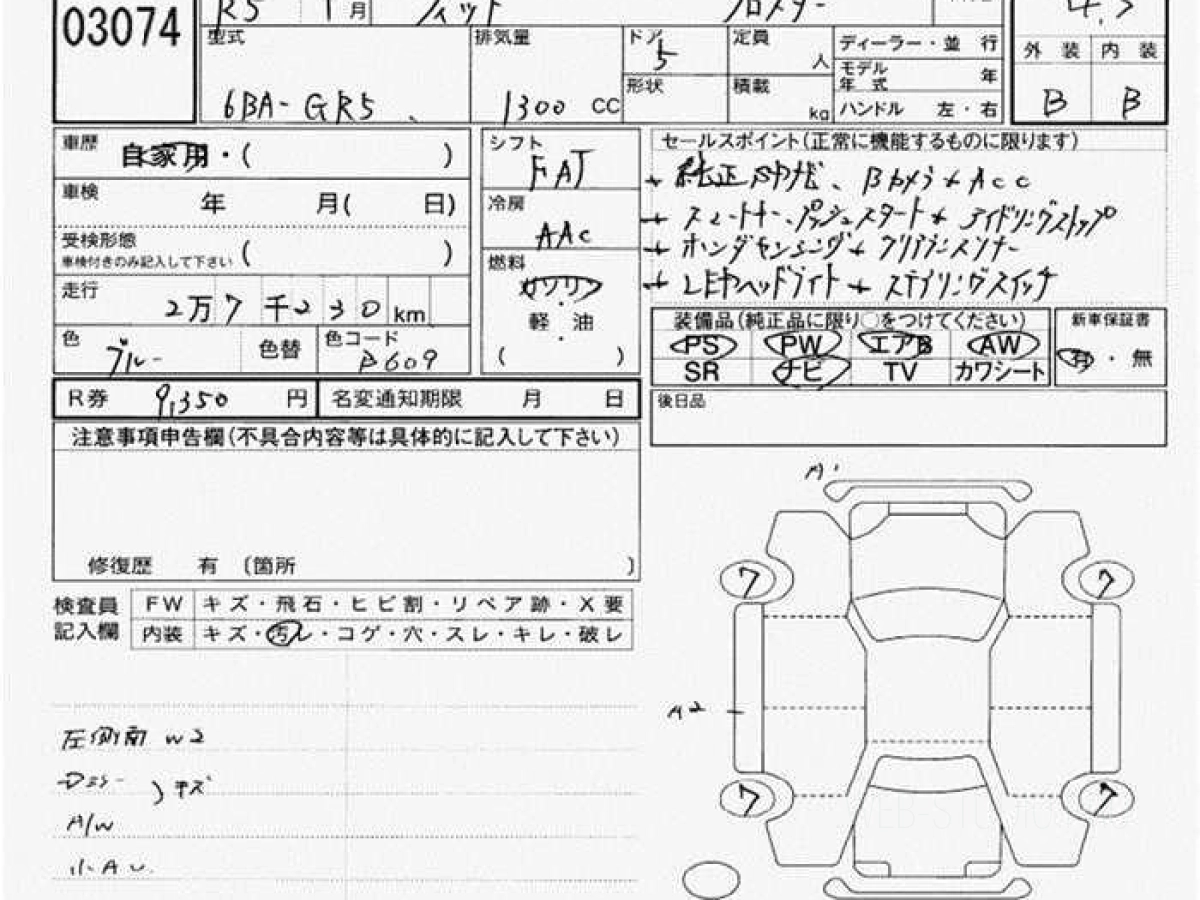 03074
R5 1月 フィット クロスター
型式 6BA-GR5
排気量 1300 CC
ドア 5
形状
定員 人
積載 kg
ディーラー・並 行
モデル年式 年
ハンドル 左・右
外 装 内 装
B B
車歴 自家用・( )
車検 年 月( 日)
受検形態
車検付きのみ記入して下さい ( )
走行 2万7千230km
色 ブルー 色替 色コード B609
シフト FAT
冷房 AAC
燃料 ガソリン
・
軽 油
・
( )
セールスポイント(正常に機能するものに限ります)
純正SDナビ、Bカメラ + ACC
+ スマートキー、プッシュスタート + アイドリングストップ
+ ホンダセンシング + クリアランスソナー
+ LEDヘッドライト + ステアリングスイッチ
装備品(純正品に限り○をつけてください)
PS PW エアB AW
SR ナビ TV カワシート
新車保証書
有・無
R券 9,350 円 名変通知期限 月 日
後日品
注意事項申告欄(不具合内容等は具体的に記入して下さい)
修復歴 有 〔箇所 〕
検査員記入欄
FW キズ・飛石・ヒビ割・リペア跡・X要
内装 キズ・汚レ・コゲ・穴・スレ・キレ・破レ
左側面 W2
Dミラー
キズ
A/W
小AU
A1
A2
ワ ワ
ワ ワ